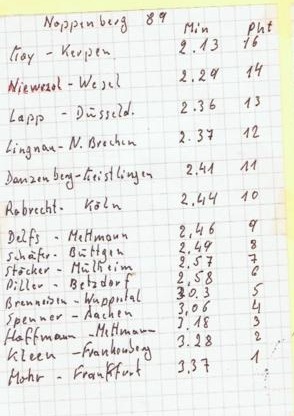 Noppenberg 89
Min Pkt
Gay - Kerpen 2.13 16
Niewesol - Wesel 2.29 14
Lapp - Düsseld. 2.36 13
Lingnau - N. Brechen 2.37 12
Danzenberg - Geistlingen 2.41 11
Robrecht - Köln 2.44 10
Delfs - Mettmann 2.46 9
Schäfer - Büttgen 2.49 8
Stöcker - Mülheim 2.57 7
Piller - Betzdorf 2.58 6
Brenneisen - Wuppertal 3.03 5
Spenner - Aachen 3.06 4
Hoffmann - Mettmann 3.18 3
Kleen - Frankenberg 3.28 2
Mohr - Frankfurt 3.37 1